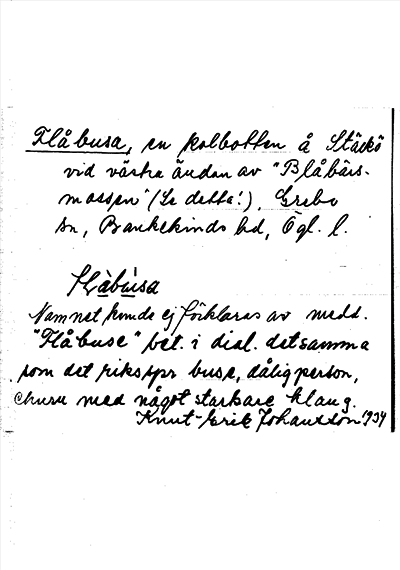 Flåbusa, en kolbotten å Stäckö
vid västra ändan av "Blåbärs-
mossen" (Se detta!), Grebo
sn, Bankekinds hd, Ögl. l.
Flåbusa
Namnet kunde ej förklaras av medd.
"Flåbuse" bet. i dial. detsamma
som det riksspr buse, dålig person,
churu med något starkare klang.
Knut-Erik Johansson 1934